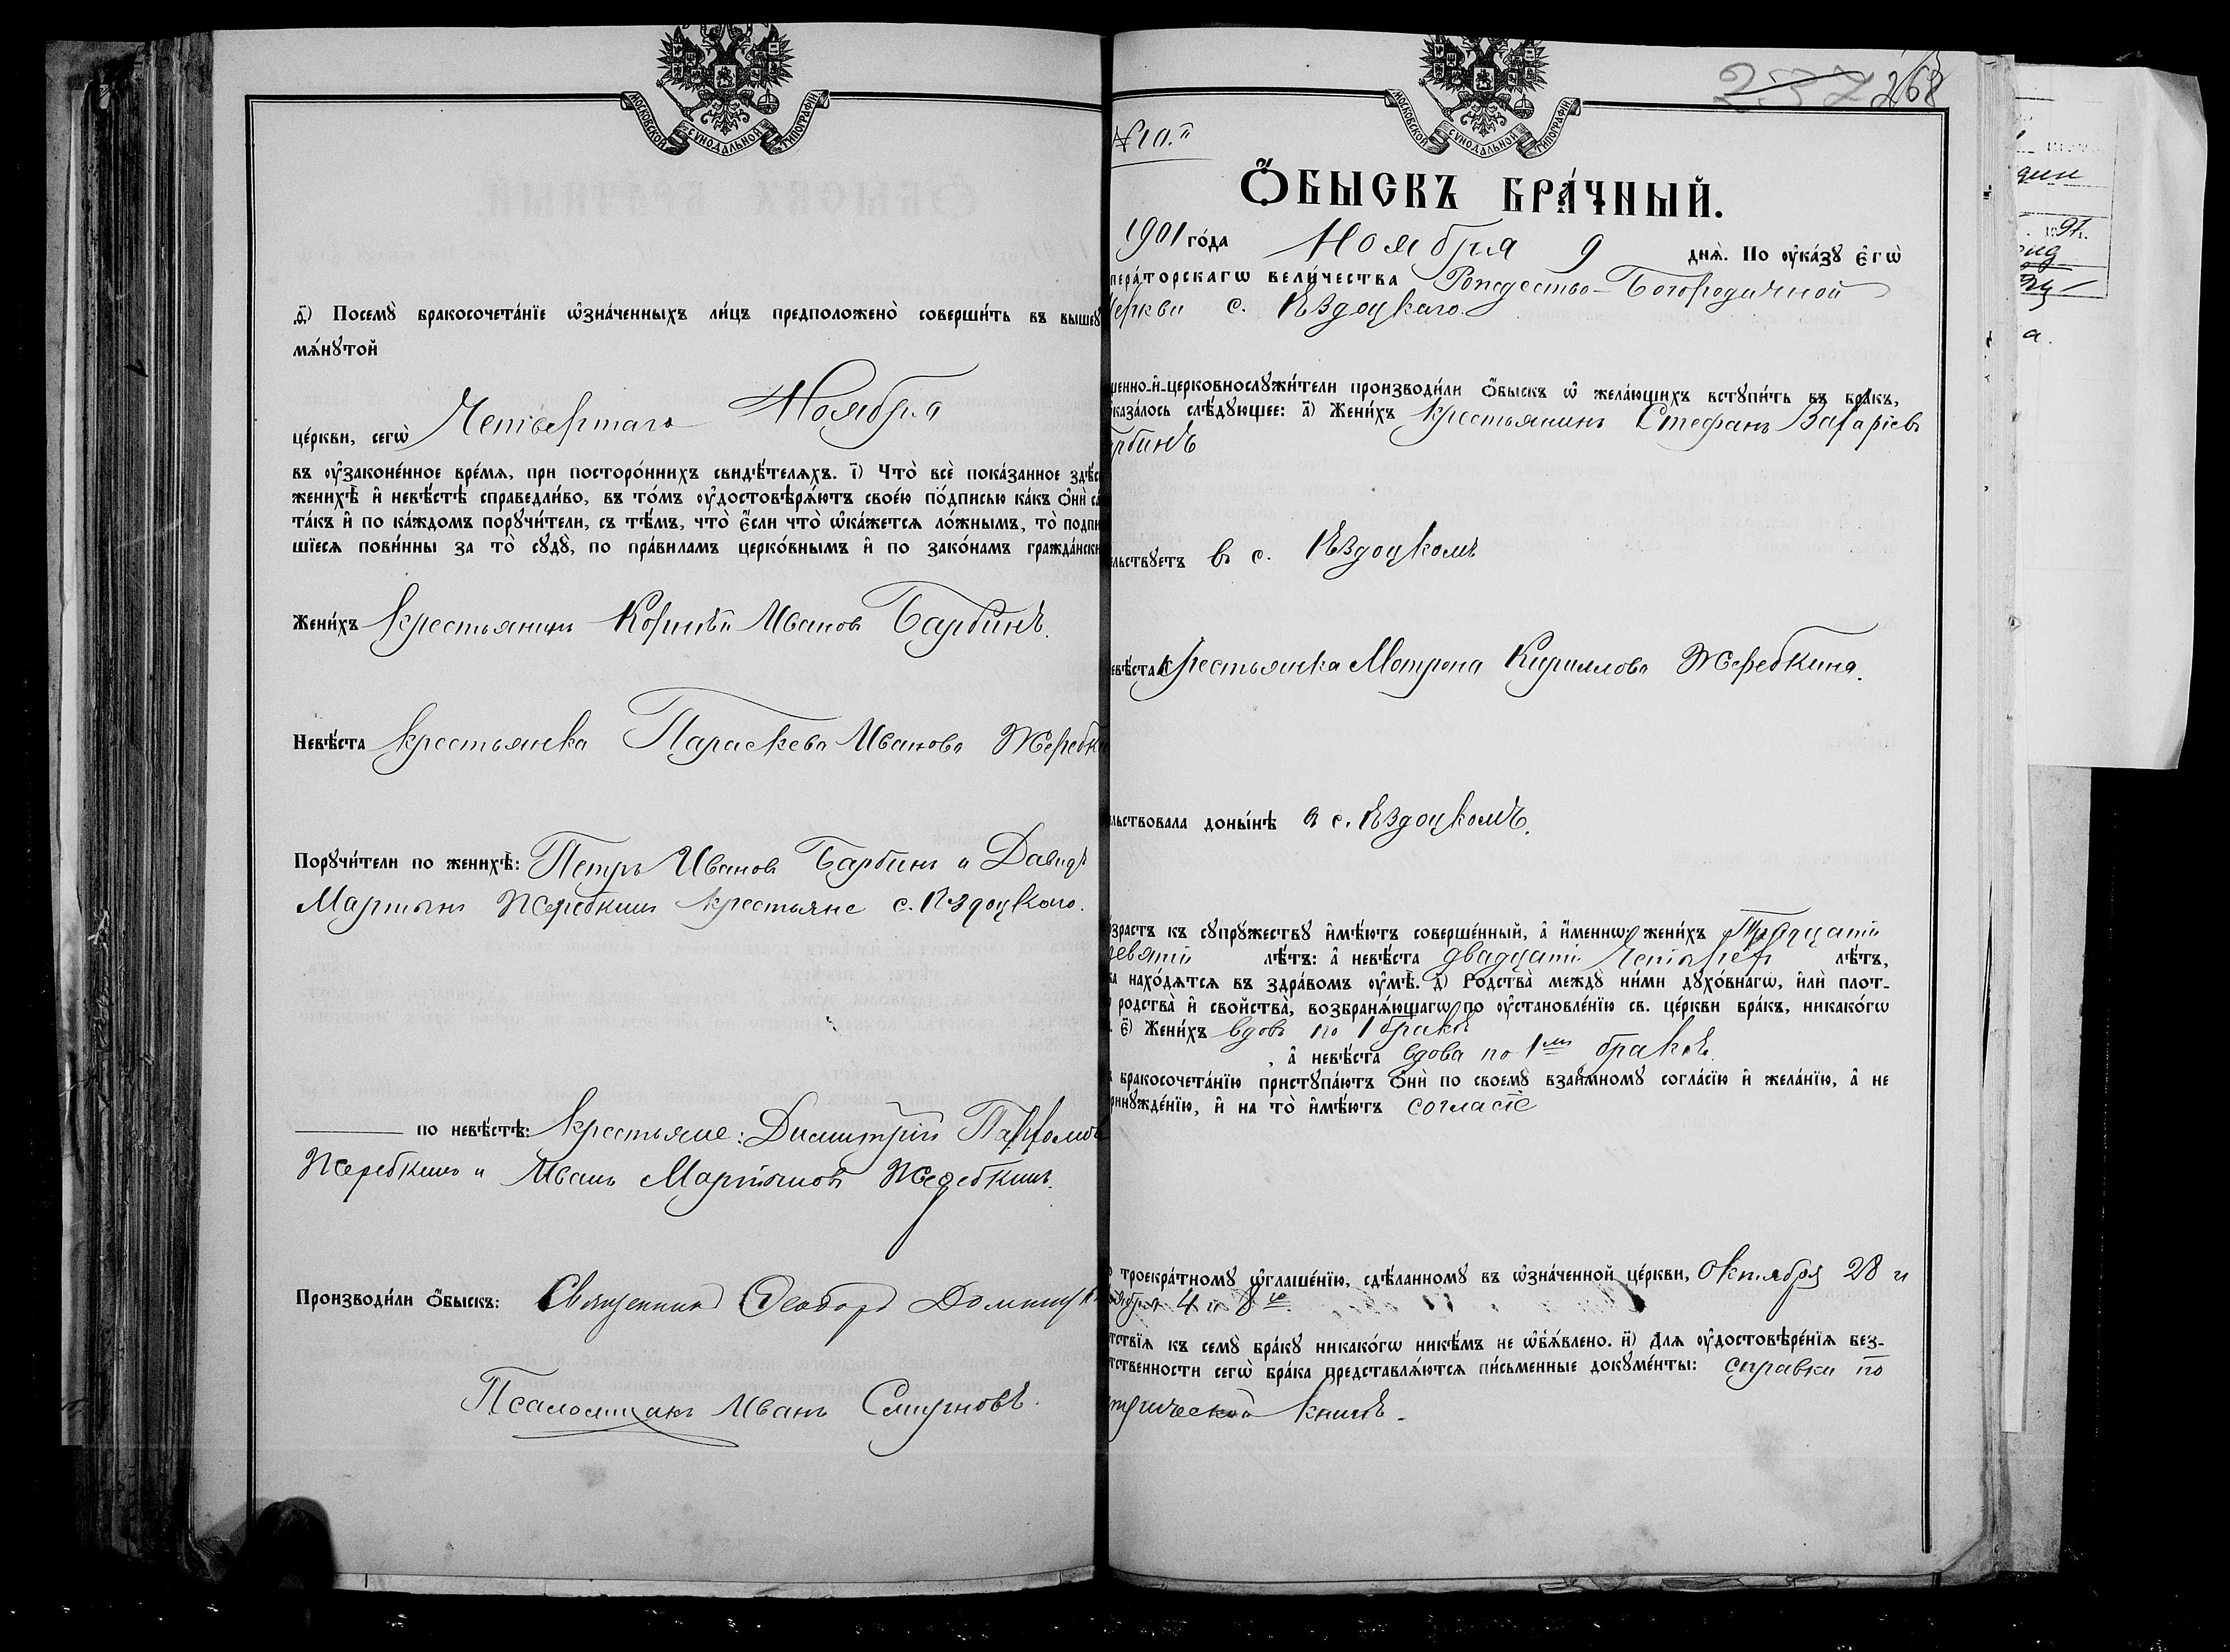 МОСКОВСКОЙ СУНОДАЛЬНОЙ ТИПОГРАФІИ
д҃і) Посемꙋ̀ бракосочета́нїе ѡ҆зна́ченныхъ ли́цъ предположено̀ соверши́ть въ вышеꙋ
мѧ́нꙋтой
це́ркви, сегѡ̀ Четвертаго Ноября
въ ᲂу҆зако́ненное вре́мѧ, при посторо́ннихъ свидѣ́телѧхъ. і҃) Что̀ всѐ пока́занное здѣс
женихѣ̀ и҆ невѣ́стѣ справедли́во, въ то́мъ ᲂу҆достовѣрѧ́ютъ свое́ю по́дписью ка́къ ѻ҆нѝ са
та́къ и҆ по ка́ждомъ порꙋчи́тели, съ тѣ́мъ, что̀ є҆́сли что̀ ѡ҆ка́жетсѧ ло́жнымъ, то̀ подпи
шїесѧ пови́нны за то̀ сꙋдꙋ̀, по пра́виламъ церко́внымъ и҆ по зако́намъ гражда́нски
Жени́хъ крестьянинъ Корнилій Ивановъ Барбинъ.
Невѣ́ста крестьянка Параскева Иванова Жеребк
Порꙋчи́тели по женихѣ̀: Петръ Ивановъ Барбинъ и Давидъ
Мартынъ Жеребкинъ крестьяне с. Ѣздоцкаго.
по невѣ́стѣ: Крестьяне: Димитрій
Жеребкинъ и Иванъ Мартиновъ Жеребкинъ.
Производи́ли ѻ҆́быскъ: Священникъ Ѳеодоръ
Псаломщикъ Иванъ Смирновъ.
237 268
МОСКОВСКОЙ СУНОДАЛЬНОЙ ТИПОГРАФІИ
№ 10.й
Ѻ҆́БЫСКЪ БРА́ЧНЫЙ.
1901 го́да Ноября 9 днѧ̀. По ᲂу҆ка́зꙋ є҆гѡ̀
пера́торскагѡ вели́чества Рождество-Богородичной
церкви с. Ѣздоцкаго.
щенно-и҆-церковнослꙋжи́тели производи́ли ѻ҆́быскъ ѡ҆ жела́ющихъ встꙋпи́ть въ бра́къ,
ѡказа́лось слѣ́дꙋющее: а҃) Жени́хъ крестьянинъ Стефанъ Захаріевъ
рбинъ
ельствꙋетъ въ с. Ѣздоцкомъ
евѣ́ста крестьянка Матрона Кириллова Жеребкина.
ельствовала доны́нѣ в с. Ѣздоцкомъ.
о́зрастъ къ сꙋпрꙋжествꙋ и҆мѣ́ютъ соверше́нный, а҆ и҆́меннѡ жени́хъ Тридцати
девяти лѣ́тъ: а҆ невѣ́ста двадцати четырех лѣ́тъ,
ка нахо́дѧтсѧ въ здра́вомъ ᲂу҆мѣ̀. д҃) Родства̀ междꙋ ни́ми дꙋхо́внагѡ, и҆лѝ плот-
родства̀ и҆ свойства̀, возбранѧ́ющагѡ по ᲂу҆становле́нїю св. це́ркви бра́къ, никако́гѡ
є҃) Жени́хъ вдовъ по 1 бракѣ
, а҆ невѣ́ста вдова по 1мъ бракѣ.
бракосочета́нїю пристꙋпа́ютъ ѻ҆нѝ по своемꙋ̀ взаи́мномꙋ согла́сїю и҆ жела́нїю, а҆ не
ринꙋжде́нїю, и҆ на то̀ и҆мѣ́ютъ согласіе
троекра́тномꙋ ѡ҆глаше́нїю, сдѣ́ланномꙋ въ ѡ҆зна́ченной це́ркви, Октября 28 и
ноября 4 и 8го
ѧтствїѧ къ семꙋ̀ бра́кꙋ никако́гѡ никѣ́мъ не ѡ҆бъѧ́влено. и҃) Для ᲂу҆достовѣре́нїѧ без-
ѧтственности сегѡ̀ бра́ка представлѧ́ютсѧ пи́сьменные докꙋме́нты: справки по
трической книгѣ.